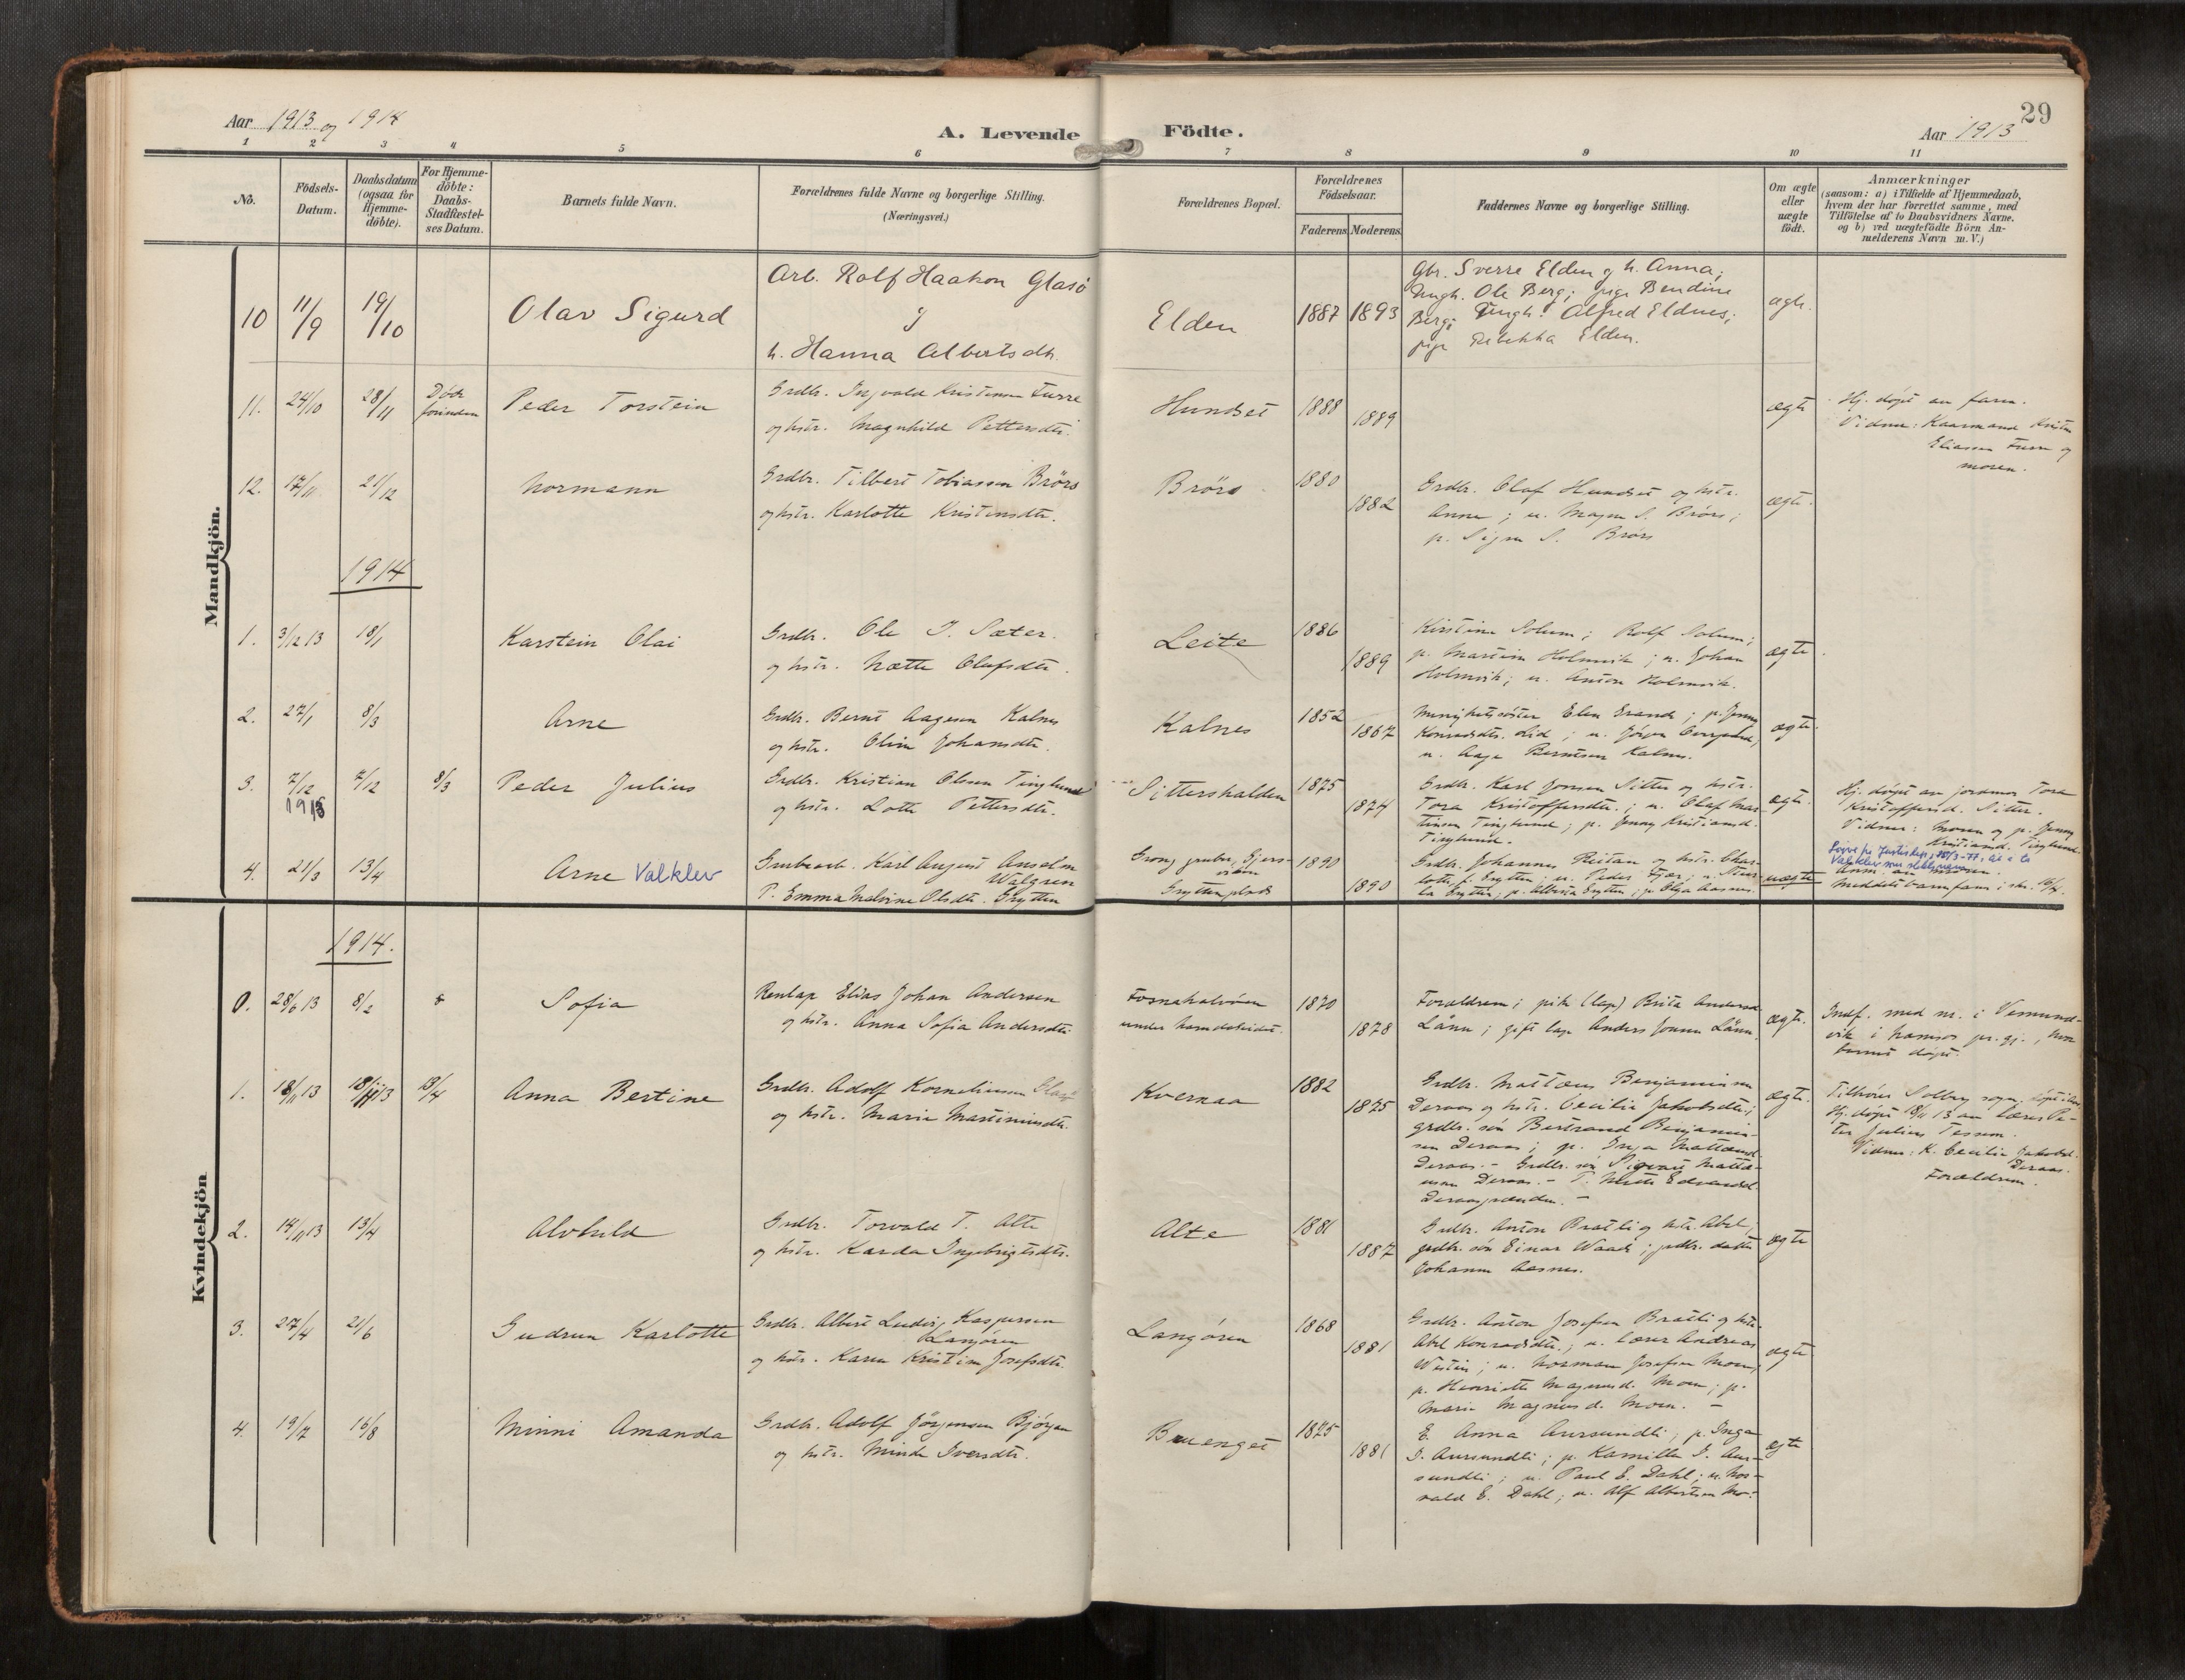 29
Aar 1913 og 1914
A. Levende Födte.
Aar 1913
1 2 3 4 5 6 7 8 9 10 11
No.
Födsels-
Datum.
Daabsdatum
(ogsaa for
Hjemme-
döbte).
For Hjemme-
döbte:
Daabs-
Stadfæstel-
ses Datum.
Barnets fulde Navn.
Forældrenes fulde Navne og borgerlige Stilling.
(Næringsvei.)
Forældrenes Bopæl.
Forældrenes
Födselsaar.
Faderens Moderens
Faddernes Navne og borgerlige Stilling.
Om ægte
eller
uægte
födt.
Anmærkninger
(saasom: a) i Tilfælde af Hjemmedaab,
hvem der har forrettet samme, med
Tilföielse af to Daabsvidners Navne,
og b) ved uægtefödte Börn An-
melderens Navn m. V.)
Mandkjön.
10 11/9 19/10 Olav Sigurd
Arb. Rolf Haakon Glasö
og
h. Hanna Albertsdtr.
Elden 1887 1893
Gbr. Sverre Elden og h. Anna;
Ungk. Ole Berg; pige Bendine
Berg; Ungk. Alfred Eldnes;
pige Rebekka Elden.
ægte.
11. 24/10 28/11 Død forinden Peder Torstein
Grdbr. Ingvald Kristensen Furre
og hstr. Magnhild Pettersdtr.
Hundset 1888 1889
ægte
Hj. døpt av farm.
Vidner: Kaarmand Kristen
Eliassen Furre og
moren.
12. 17/11 21/12 Normann
Grdbr. Tilbert Tobiassen Brörs
og hstr. Karlotte Kristensdtr.
Brörs 1880 1882
Grdbr. Olaf Hundset og hstr.
Anna; u. Magne S. Brörs;
p. Signe S. Brörs
ægte.
1914
1. 3/12 13 18/1 Karstein Olai
Grdbr. Ole J. Sæter.
og hstr. Nætte Olufsdtr.
Leite 1886 1889
Kirstine Solum; Rolf Solum;
p. Martine Holmvik; u. Johan
Holmvik; u. Anton Holmvik.
ægte.
2. 27/1 8/3 Arne
Grdbr. Bernt Aagesen Kalnes
og hstr. Oline Johansdtr.
Kalnes 1852 1867
Menighetssöster Elen Strand; p. Jenny
Konradsdtr. Lid; u. Jörgen
u. Aage Berntsen Kalnes.
ægte.
3. 7/12 1913 7/12 8/3 Peder Julius
Grdbr. Kristian Olsen Tinglund
og hstr. Lotte Pettersdtr.
Sittershalden 1875 1874
Grdbr. Karl Jonsen Sitter og hstr.
Tora Kristoffersdtr.; u. Olaf Mar-
tinsen Tinglund; p. Jenny Kristiansd.
Tinglund.
ægte.
Hj. døpt av jordmor Tora
Kristoffersd. Sitter.
Vidner: Moren og p. Jenny
Kristiansd. Tinglund.
4. 21/3 13/4 Arne Valklev
Grubearb. Karl August Anselm
Walgren
P. Emma Malvine Olsdtr. Grytten
Grong gruber, Gjers-
viken
Gryttenplads
1890 1890
Grdbr. Johannes Reitan og hstr. Char-
lotte; f. Grytten; u. Peder Fjær; u. Nico-
la Grytten; p. Alberta Grytten; p. Olga Aasnes.
uægte
Valklev som slektsnavn
Anm. av moren.
Meddelt barnefaren i skr. 16/4.
Kvindekjön
1914.
0. 28/6 13 8/2 Sofia
Renlap Elias Johan Andersen
og hstr. Anna Sofia Andersdtr.
Fosnahalvöen
under Namdalseidet.
1870 1878
Forældrene; pike (lap) Brita Andersd.
Länn; gift lap Anders Jonsen Länn
ægte.
Indf. med nr. i Vemund-
vik i Namsos pr.gj., hvor
barnet døpt.
1. 18/11 13 18/11 13 13/4 Anna Bertine
Grdbr. Adolf Korneliussen
og hstr. Marie Martiniusdtr.
Kvernaa 1882 1875
Grdbr. Mattæus Benjaminsen
Deraas og hstr. Cecilie Jakobsdtr.;
grdbr. sön Bertrand Benjamin-
sen Deraas; p. Inga Mattæusd.
Deraas. - Grdbr. sön Sigvart Mattæ-
usen Deraas. - T. Mette Edvardsd.
ægte.
Tilhörer Solberg sogn,
Hj. døpt 18/11 13 av lærer Pe-
ter Julius Tessem.
Vidner: K. Cecilie Jakobsd.
Deraas.
Forældrene.
2. 14/11 13 13/4 Alvhild
Grdbr. Torvald T. Alte
og hstr. Karda Ingebrigtsdtr.
Alte 1881 1887
Grdbr. Anton Bratli og hstr. Abel,
grdbr. sön Einar Waade; grdbr. datter
Johanne Aasnes.
ægte
3. 27/4 21/6 Gudrun Karlotte
Grdbr. Albert Ludvig Kaspersen
Langören
og hstr. Karen Kristine Josefsdtr.
Langören 1868 1881
Grdbr. Anton Josefsen Bratli og hstr.
Abel Konradsdtr.; u. lærer Andreas
Westin; u. Norman Josefsen Moen;
p. Henriette Magnusd. Moen; p.
Marie Magnusd. Moen. -
ægte.
4. 19/7 16/8 Minni Amanda
Grdbr. Adolf Jörgensen Bjørgan
og hstr. Minda Iversdtr.
Bruenget 1875 1881
E. Anna Aursundli; p. Inga
I. Aursundli; p. Kamilla I. Aur-
sundli; u. Paul E. Dahl; u. Nor-
vald E. Dahl; u. Alf Albertsen Mo.
ægte